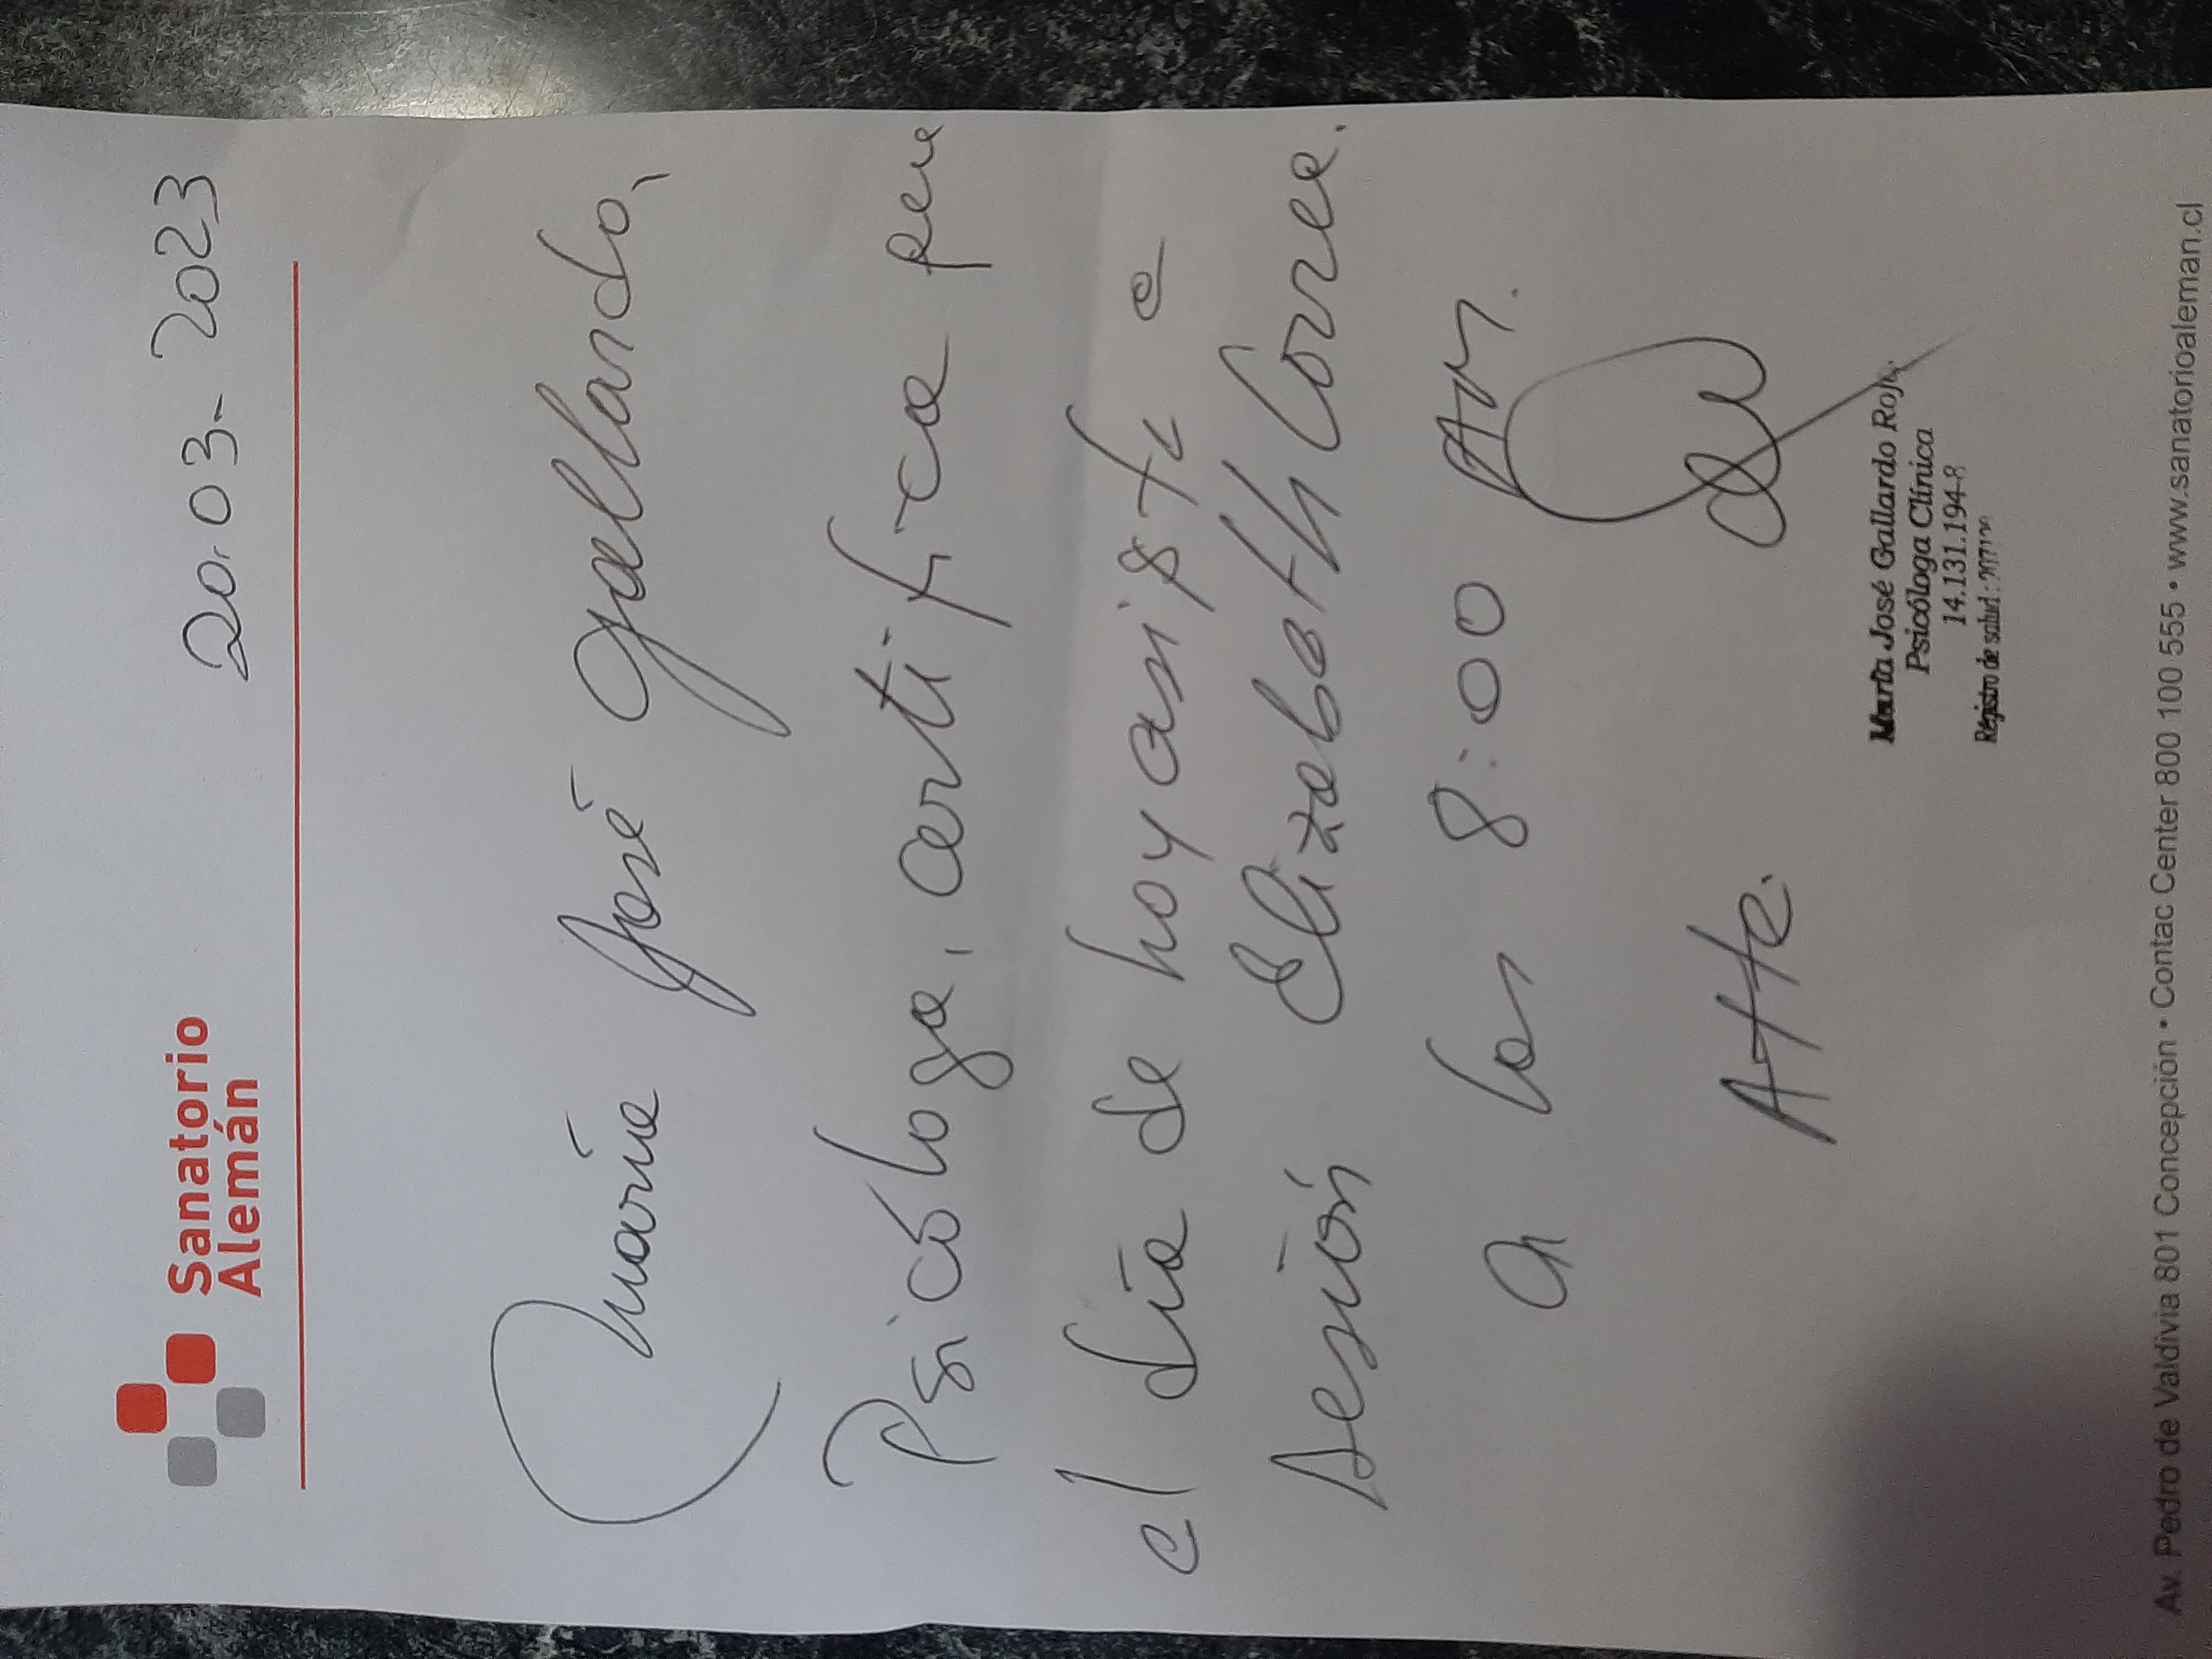 Sanatorio
Alemán
20.03-2023
María José Gallardo,
Psicóloga, certifica que
el día de hoy asiste a
sesión Elizabeth Correa.
a las 8:00 AM.
Atte.
María José Gallardo Rojas
Psicóloga Clínica
14.131.194-8
Registro de salud:
Av. Pedro de Valdivia 801 Concepción • Contac Center 800 100 555 • www.sanatorioaleman.cl